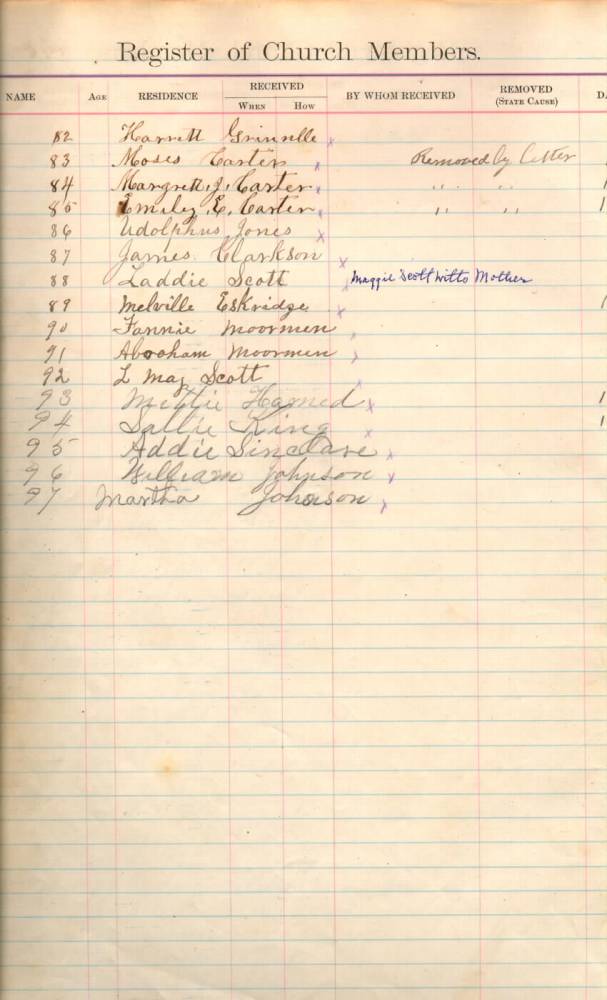 Register of Church Members.
NAME AGE RESIDENCE RECEIVED WHEN HOW BY WHOM RECEIVED REMOVED (STATE CAUSE) DA
82 Harrett Grinnelle x
83 Moses Carter x Removed by Letter
84 Margrett, J, Carter x " "
85 Emiley, E, Carter x " " 1
86 Udolphus Jones x
87 James Clarkson x
88 Laddie Scott x Maggie Scott Mother
89 Melville Eskridge x 1
90 Fannie Moormen x
91 Abraham Moormen x
92 L May Scott x
93 Harned x 1
94 Sallie King x 1
95 Addie Sinclare x
96 William Johnson x
97 Martha Johnson x